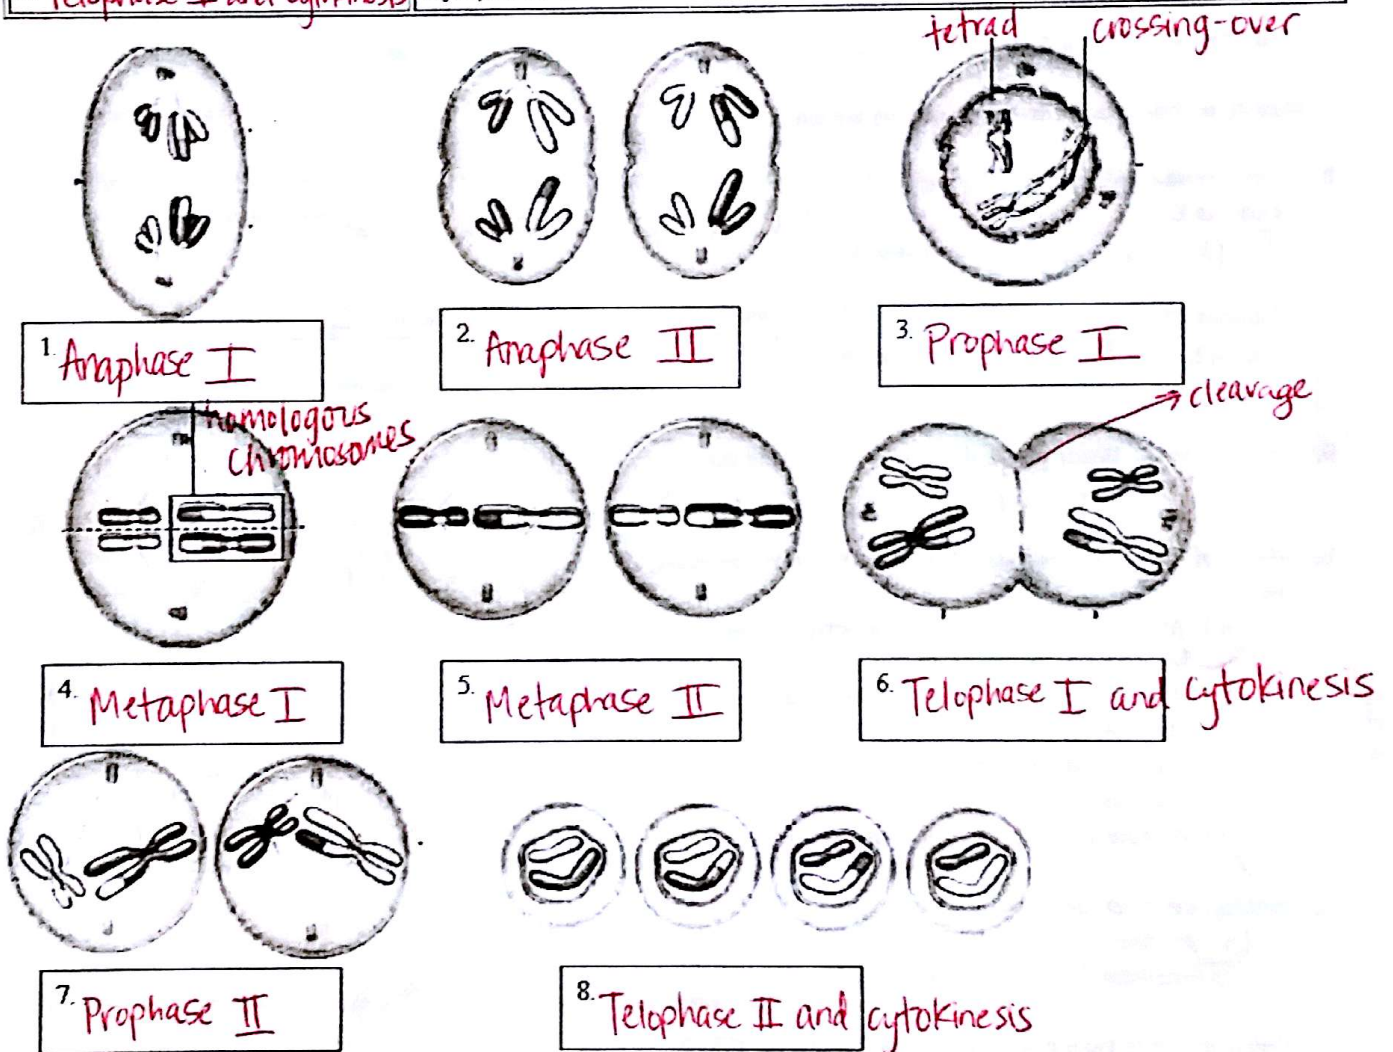 Telophase I and cytokinesis
tetrad
crossing-over
1. Anaphase I
2. Anaphase II
3. Prophase I
homologous
chromosomes
cleavage
4. Metaphase I
5. Metaphase II
6. Telophase I and cytokinesis
7. Prophase II
8. Telophase II and cytokinesis